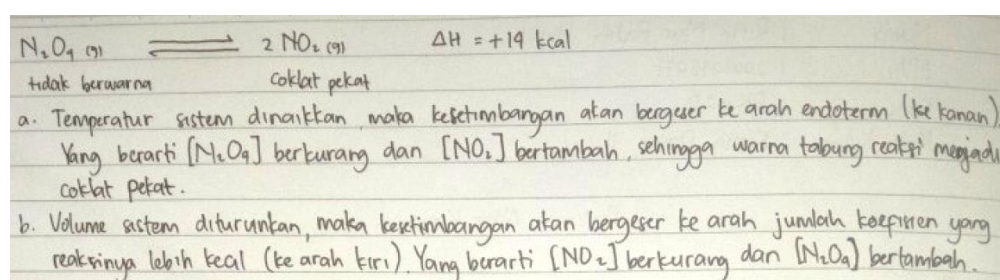 N₂O₄ (g) ⇌ 2 NO₂ (g) ΔH = +14 kcal
tidak berwarna coklat pekat
a. Temperatur sistem dinaikkan, maka kesetimbangan akan bergeser ke arah endoterm (ke kanan)
Yang berarti [N₂O₄] berkurang dan [NO₂] bertambah, sehingga warna tabung reaksi menjadi
coklat pekat.
b. Volume sistem diturunkan, maka kesetimbangan akan bergeser ke arah jumlah koefisien yang
reaksinya lebih kecil (ke arah kiri). Yang berarti [NO₂] berkurang dan [N₂O₄] bertambah.